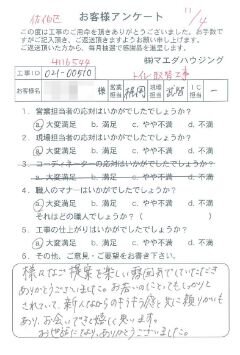 佐伯区
お客様アンケート
11/4
この度は工事のご用命を頂きありがとうございました。お手数で
すがご記入頂き、ご返送頂きますようお願い申し上げます。
ご返送頂いた方から、毎月抽選で感謝品を進呈します。
4116544
㈱マエダハウジング
工事ID 021-00510
トイレ取替工事
お客様名 様 営業担当 現場担当 IC担当 ー
1. 営業担当者の応対はいかがでしたでしょうか?
a. 大変満足 b. 満足 c. やや不満 d. 不満
2. 現場担当者の応対はいかがでしたでしょうか?
a. 大変満足 b. 満足 c. やや不満 d. 不満
3. コーディネーターの応対はいかがでしたでしょうか?
a. 大変満足 b. 満足 c. やや不満 d. 不満
4. 職人のマナーはいかがでしたでしょうか?
a. 大変満足 b. 満足 c. やや不満 d. 不満
それはどの職人でしょうか?( )
5. 工事の仕上がりはいかがでしたでしょうか?
a. 大変満足 b. 満足 c. やや不満 d. 不満
6. その他、ご意見・ご要望をお書き下さい。
様々なご提案を楽しい雰囲気でしていただき
ありがとうございました。お若いのにとってもしっかり
されていて、新人ながらのキラキラ感と共に頼りがいも
あり、お会いできて嬉しく思います。
お世話になり、ありがとうございました。